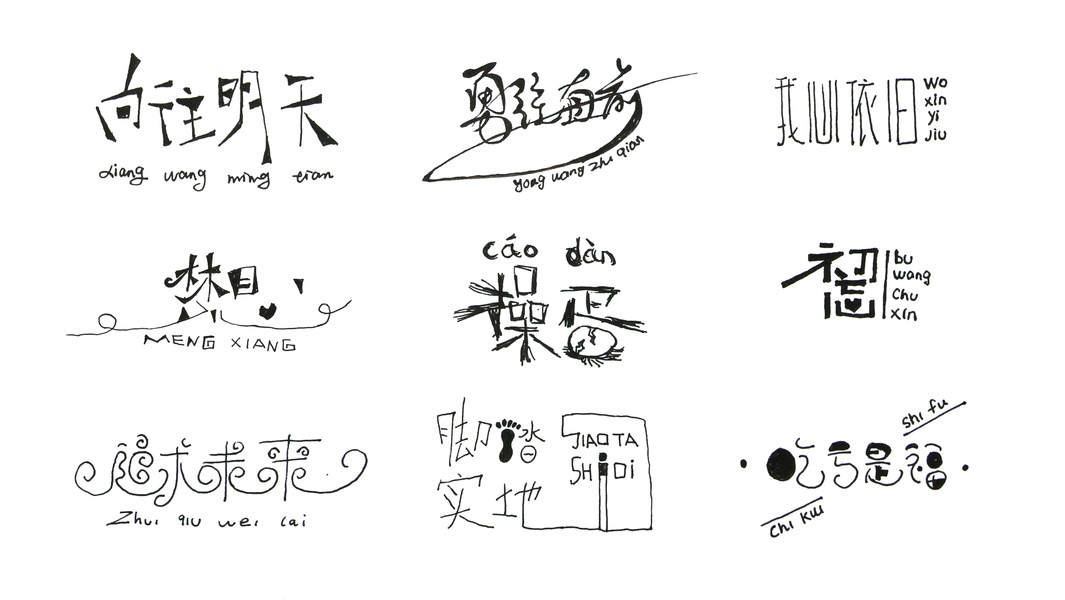 向往明天
xiang wang ming tian
勇往直前
yong wang zhi qian
我心依旧
wo
xin
yi
jiu
梦想
MENG XIANG
cáo dàn
操蛋
不忘初心
bu
wang
chu
xin
追求未来
Zhui qiu wei lai
脚踏
实地
JIAO TA
SHI Di
shi fu
吃亏是福
chi kui